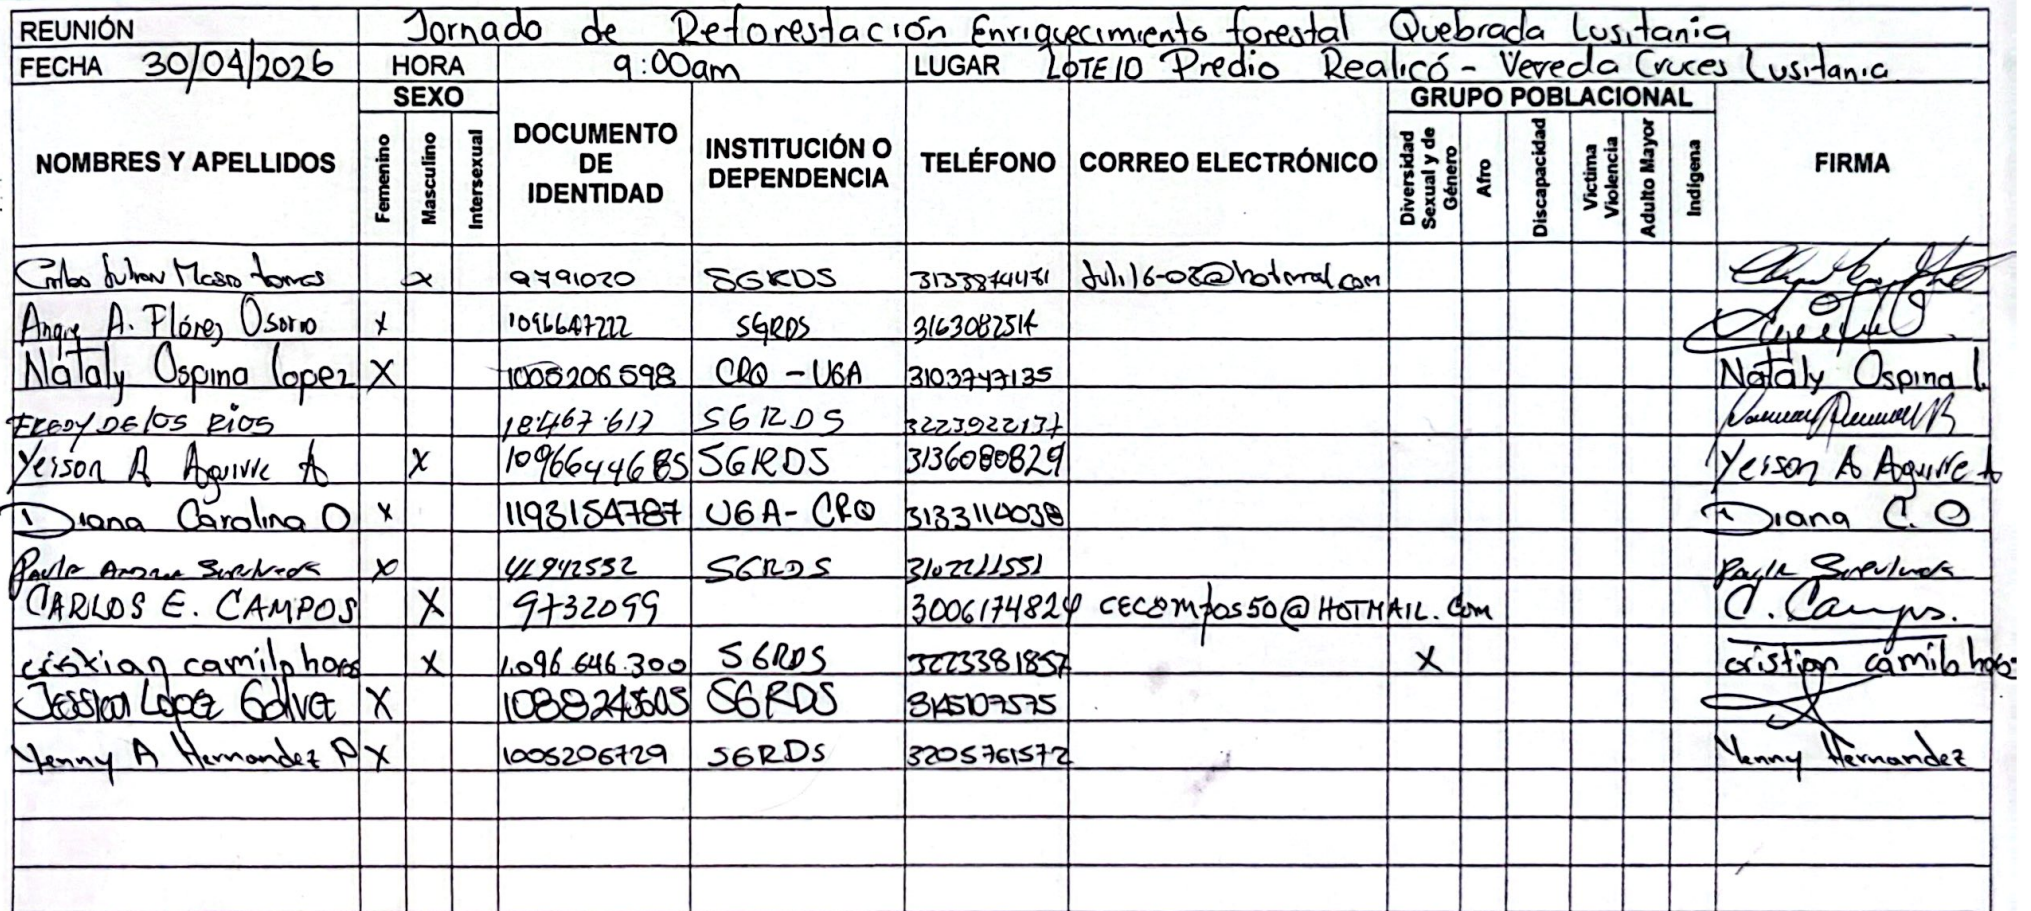 REUNIÓN Jornado de Reforestación Enriquecimiento forestal Quebrada Lusitania
FECHA 30/04/2026 HORA 9:00am LUGAR LOTE 10 Predio Realicó - Vereda Cruces Lusitania
SEXO GRUPO POBLACIONAL
NOMBRES Y APELLIDOS Femenino Masculino Intersexual DOCUMENTO DE IDENTIDAD INSTITUCIÓN O DEPENDENCIA TELÉFONO CORREO ELECTRÓNICO Diversidad Sexual y de Género Afro Discapacidad Victima Violencia Adulto Mayor Indígena FIRMA
x 9791020 SGRDS 3133874471
A. Flórez Osorio x 1096647222 SGRDS 3163082514
Nataly Ospina lopez X 1005206598 CRQ - UGA 3103747135 Nataly Ospina L
FREDY DE LOS RIOS 18.467.617 SGRDS 3223922137
Yeison A Aguirre A X 1096644685 SGRDS 3136080829 Yeison A Aguirre A
Diana Carolina O x 1193154787 UGA - CRQ 3133114038 Diana C. O
Paula Andrea Sepulveda x 41942552 SGRDS 3102211551 Paula Sepulveda
CARLOS E. CAMPOS X 9732099 3006174824 CECAMPOS50@HOTMAIL.Com C. Campos.
cristian camilo X 1.096.646.300 SGRDS 3223381857 X cristian camilo
Jessica Lopez Galvez X 1088245505 SGRDS 3145107575
Yenny A Hernandez P X 1005206729 SGRDS 3205761572 Yenny Hernandez